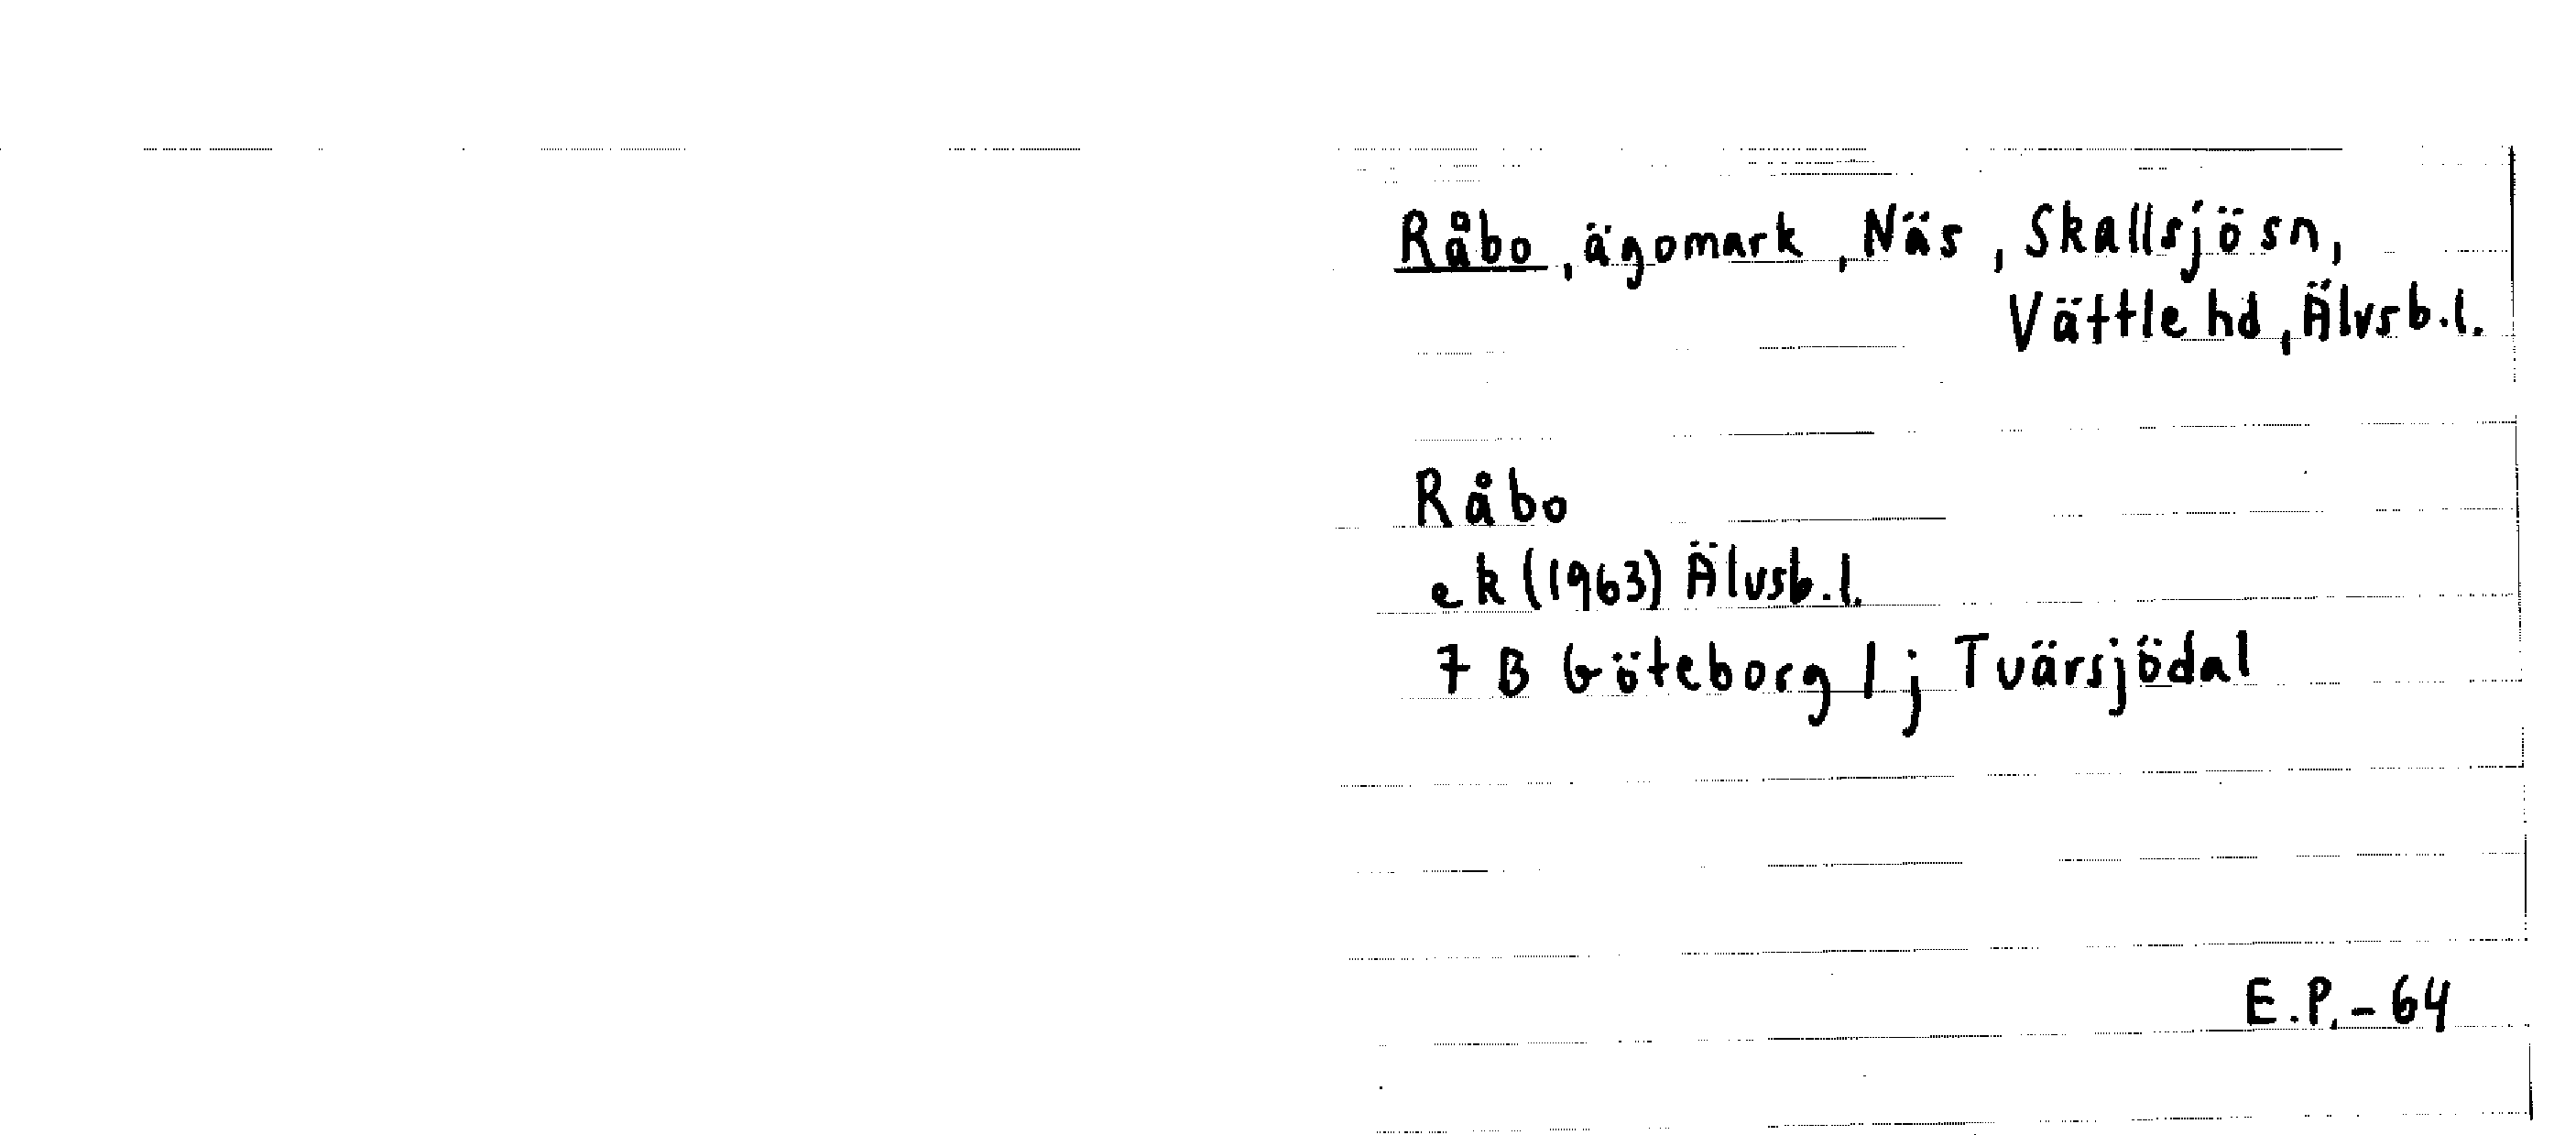 Råbo, ägomark, Näs, Skallsjösn,
Vättle hd, Älvsb.l.
Råbo
ek (1963) Älvsb.l.
7 B Göteborg 1 j Tvärsjödal
E.P. - 64